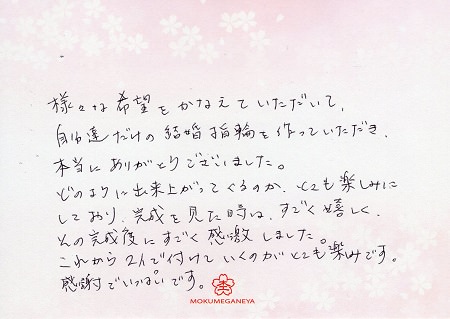 様々な希望をかなえていただいて、
自分達だけの結婚指輪を作っていただき、
本当にありがとうございました。
どのように出来上がってくるのか、とても楽しみに
しており、完成を見た時は、すごく嬉しく、
その完成度にすごく感激しました。
これから2人で付けていくのがとても楽みです。
感謝でいっぱいです。
MOKUMEGANEYA